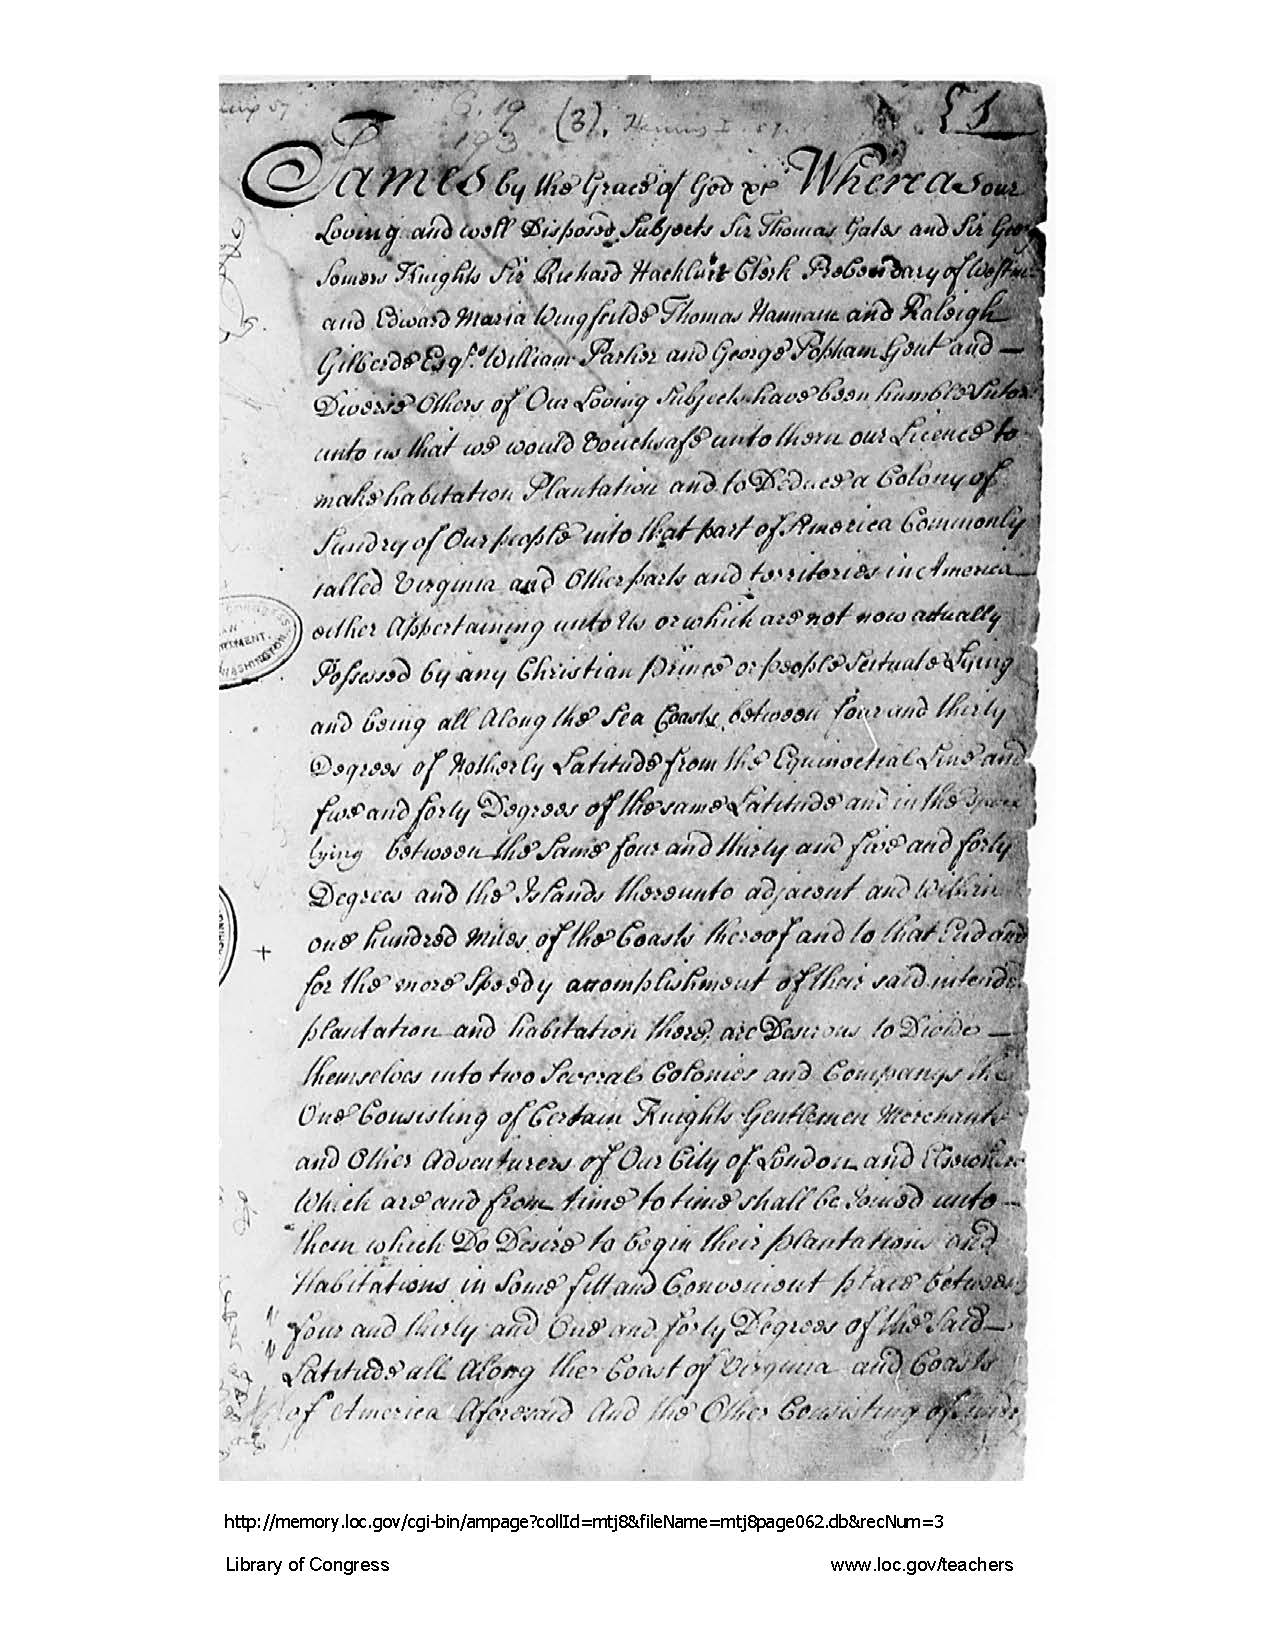 (3).
James by the Grace of God &c Whereas our
Loving and well Disposed Subjects Sir Thomas Gates and Sir Geo
Somers Knights Sir Richard Hackluit Clerk Prebendary of Westm
and Edward Maria Wingfeilde Thomas Hannam and Raleigh
Gilberde Esqrs. William Parker and George Popham Gent and —
Diverse Others of Our Loving Subjects have been humble Sutors
unto us that we would Vouchsafe unto them our Licence to
make habitation Plantation and to Deduce a Colony of
Sundry of Our people into that part of America Commonly
called Virginia and Other parts and territories in America
either Appertaining unto Us or which are not now actually
Possessed by any Christian Prince or people Scituate Lying
and being all Along the Sea Coasts between four and thirty
Degrees of Notherly Latitude from the Equinoctial Line and
five and forty Degrees of the same Latitude and in the space
lying between the Same four and thirty and five and forty
Degrees and the Islands thereunto adjacent and within
one hundred Miles of the Coasts thereof and to that End and
for the more Speedy accomplishment of their said intende
plantation and habitation there, are Desirous to Divide —
themselves into two Several Colonies and Companys the
One Consisting of Certain Knights Gentlemen Merchants
and Other Adventurers of Our City of London and Elsewhere
Which are and from time to time shall be Joined unto —
them which Do Desire to begin their plantations and
Habitations in Some fitt and Convenient place between
four and thirty and One and forty Degrees of the Said —
Latitude all Along the Coast of Virginia and Coasts
of America Aforesaid And the Other Consisting of
http://memory.loc.gov/cgi-bin/ampage?collId=mtj8&fileName=mtj8page062.db&recNum=3
Library of Congress
www.loc.gov/teachers